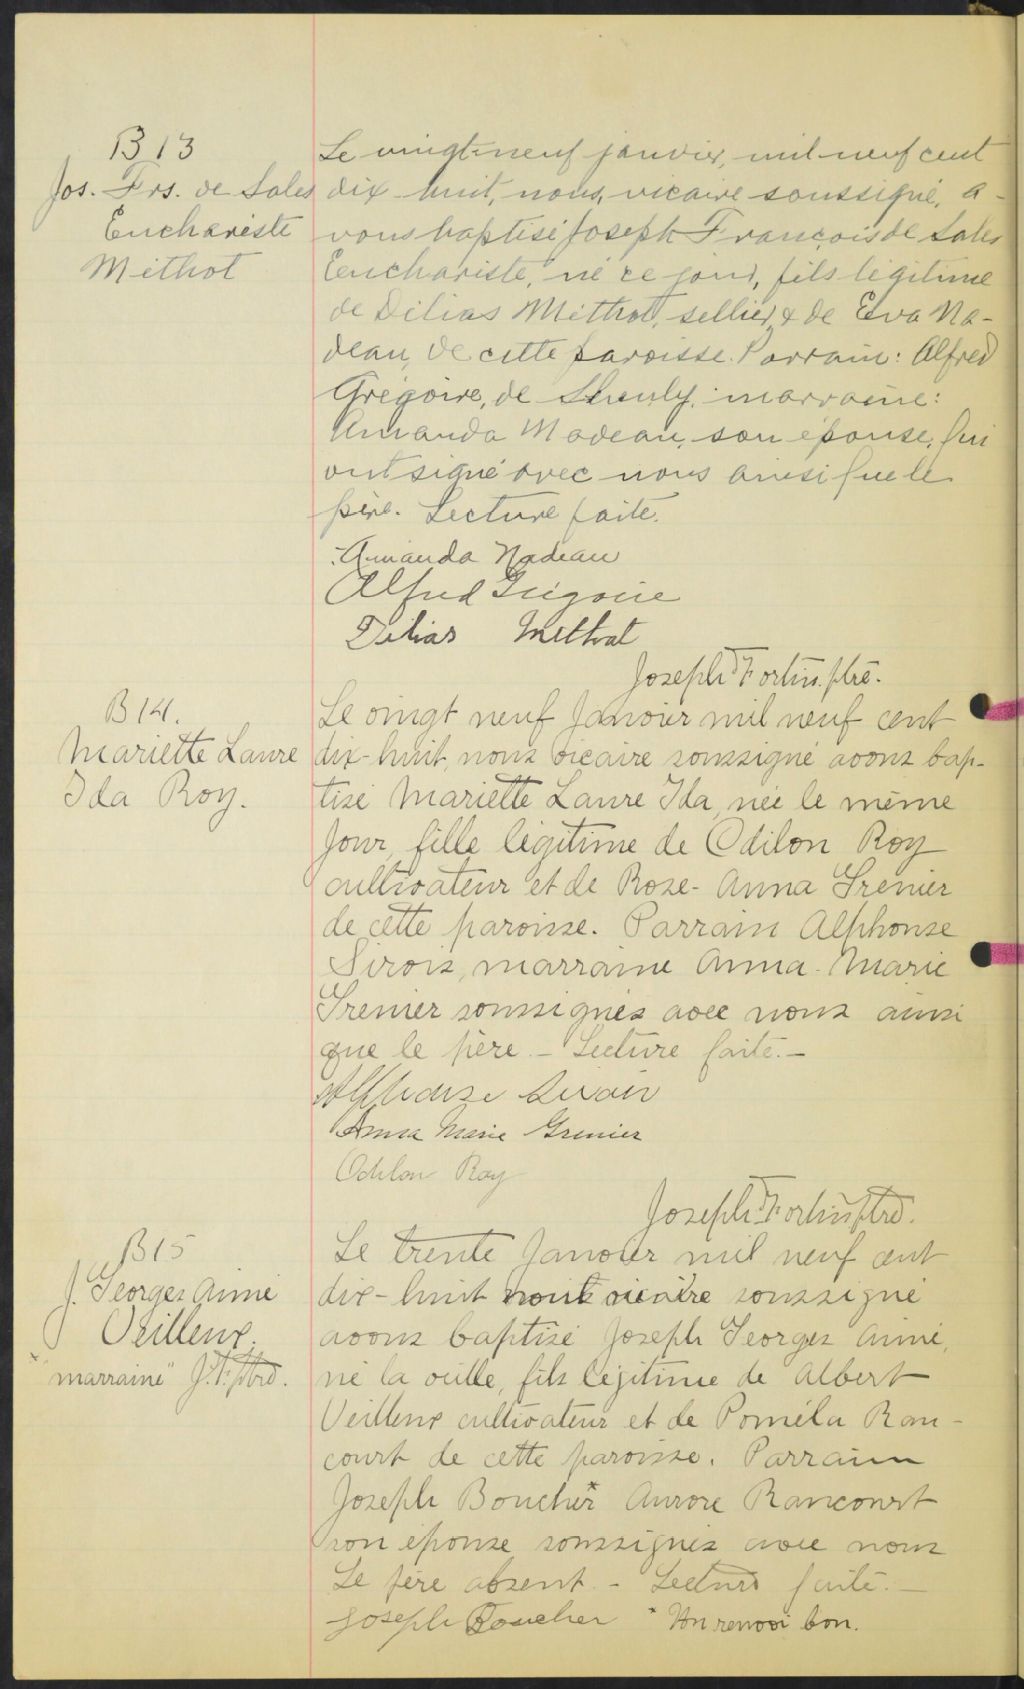 B 13
Jos. Frs. de Sales
Euchariste
Méthot
Le vingt-neuf janvier, mil-neuf cent
dix-huit, nous, vicaire soussigné, a-
vons baptisé Joseph François de Sales
Euchariste, né ce jour, fils légitime
de Délias Méthot, sellier, & de Eva Na-
deau, de cette paroisse. Parrain: Alfred
Grégoire, de Shenly, marraine:
Amanda Nadeau, son épouse, qui
ont signé avec nous ainsi que le
père. Lecture faite.
Amanda Nadeau
Alfred Grégoire
Délias Méthot
Joseph Fortin ptre.
B 14.
Mariette Laure
Ida Roy.
Le vingt neuf Janvier mil neuf cent
dix-huit, nous vicaire soussigné avons bap-
tisé Mariette Laure Ida, née le même
jour, fille légitime de Odilon Roy
cultivateur et de Rose-Anna Grenier
de cette paroisse. Parrain Alphonse
Sirois, marraine Anna-Marie
Grenier soussignés avec nous ainsi
que le père. - Lecture faite. -
Alphonse Sirois
Anna Marie Grenier
Odilon Roy
Joseph Fortin ptre.
B 15
J. Georges Aimé
Veilleux.
× "marraine" J. F. ptre.
Le trente Janvier mil neuf cent
dix-huit nous vicaire soussigné
avons baptisé Joseph Georges Aimé,
né la veille, fils légitime de Albert
Veilleux cultivateur et de Poméla Ran-
court de cette paroisse. Parrain
Joseph Boucher × Aurore Rancourt
son épouse soussignés avec nous
Le père absent. - Lecture faite. -
Joseph Boucher × Un renvoi bon.